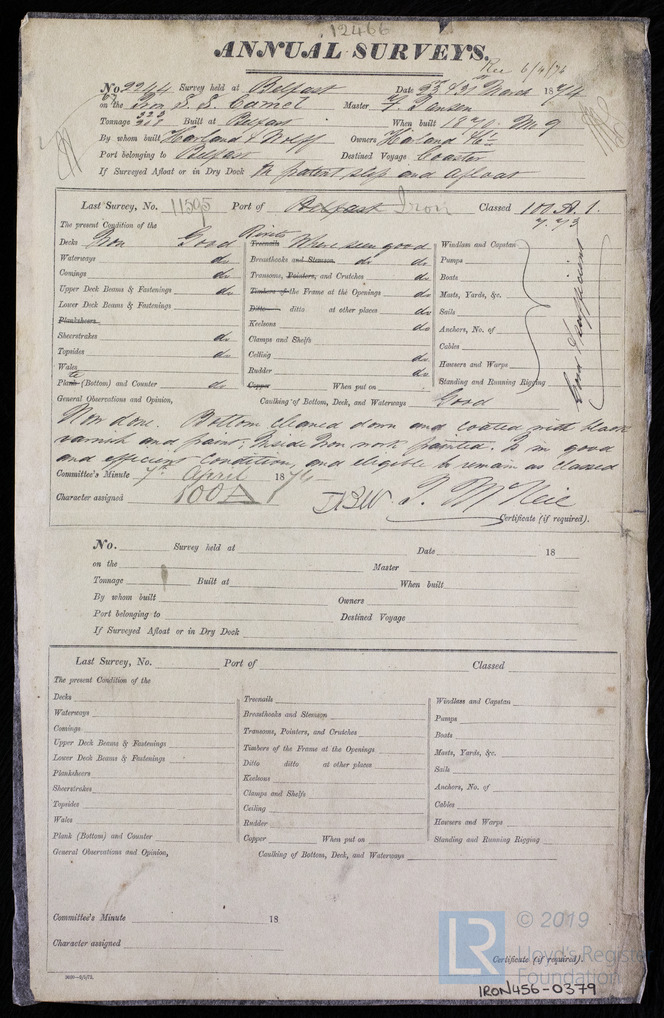 12466
ANNUAL SURVEYS.
Rec 6/4/74
No. 2244 Survey held at Belfast Date 23 & 31 March 1874
on the Iron S.S. Camel Master
Tonnage Built at Belfast When built 1870
By whom built Harland & Wolff Owners Harland &c
Port belonging to Belfast Destined Voyage Coaster
If Surveyed Afloat or in Dry Dock In patent slip and afloat
Last Survey, No. 11595 Port of Belfast Iron Classed 100 A.1.
The present Condition of the
Decks Iron Good
Waterways do
Comings do
Upper Deck Beams & Fastenings do
Lower Deck Beams & Fastenings
Planksheers
Sheerstrakes do
Topsides do
Wales
Plank (Bottom) and Counter do
General Observations and Opinion,
Rivets
Treenails Where seen good
Breasthooks and Stemson do do
Transoms, Pointers, and Crutches do
Timbers of the Frame at the Openings do
Ditto ditto at other places do
Keelsons do
Clamps and Shelfs
Ceiling do
Rudder do
Copper When put on
Caulking of Bottom, Deck, and Waterways Good
Windlass and Capstan
Pumps
Boats
Masts, Yards, &c.
Sails
Anchors, No. of
Cables
Hawsers and Warps
Standing and Running Rigging
Now done. Bottom cleaned down and coated with black
varnish and paint; Inside Iron work painted. Is in good
and efficient condition, and eligible to remain as classed
Committee's Minute 7th April 1874
Character assigned 100A
T. McNeil
Certificate (if required).
No. Survey held at Date 18
on the Master
Tonnage Built at When built
By whom built Owners
Port belonging to Destined Voyage
If Surveyed Afloat or in Dry Dock
Last Survey, No. Port of Classed
The present Condition of the
Decks
Waterways
Comings
Upper Deck Beams & Fastenings
Lower Deck Beams & Fastenings
Planksheers
Sheerstrakes
Topsides
Wales
Plank (Bottom) and Counter
General Observations and Opinion,
Treenails
Breasthooks and Stemson
Transoms, Pointers, and Crutches
Timbers of the Frame at the Openings
Ditto ditto at other places
Keelsons
Clamps and Shelfs
Ceiling
Rudder
Copper When put on
Caulking of Bottom, Deck, and Waterways
Windlass and Capstan
Pumps
Boats
Masts, Yards, &c.
Sails
Anchors, No. of
Cables
Hawsers and Warps
Standing and Running Rigging
Committee's Minute 18
Character assigned
Certificate (if required).
LR © 2019
Lloyd's Register
Foundation
IRON456-0379